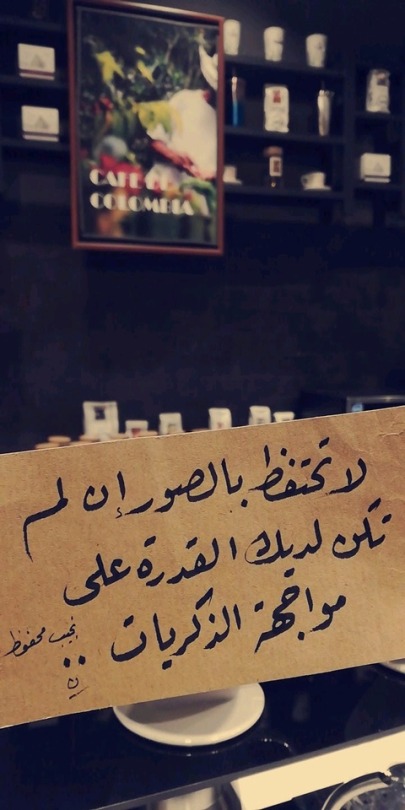 CAFE DE
COLOMBIA
لا تحتفظ بالصور إن لم
تكن لديك القدرة على
مواجهة الذكريات
نجيب محفوظ